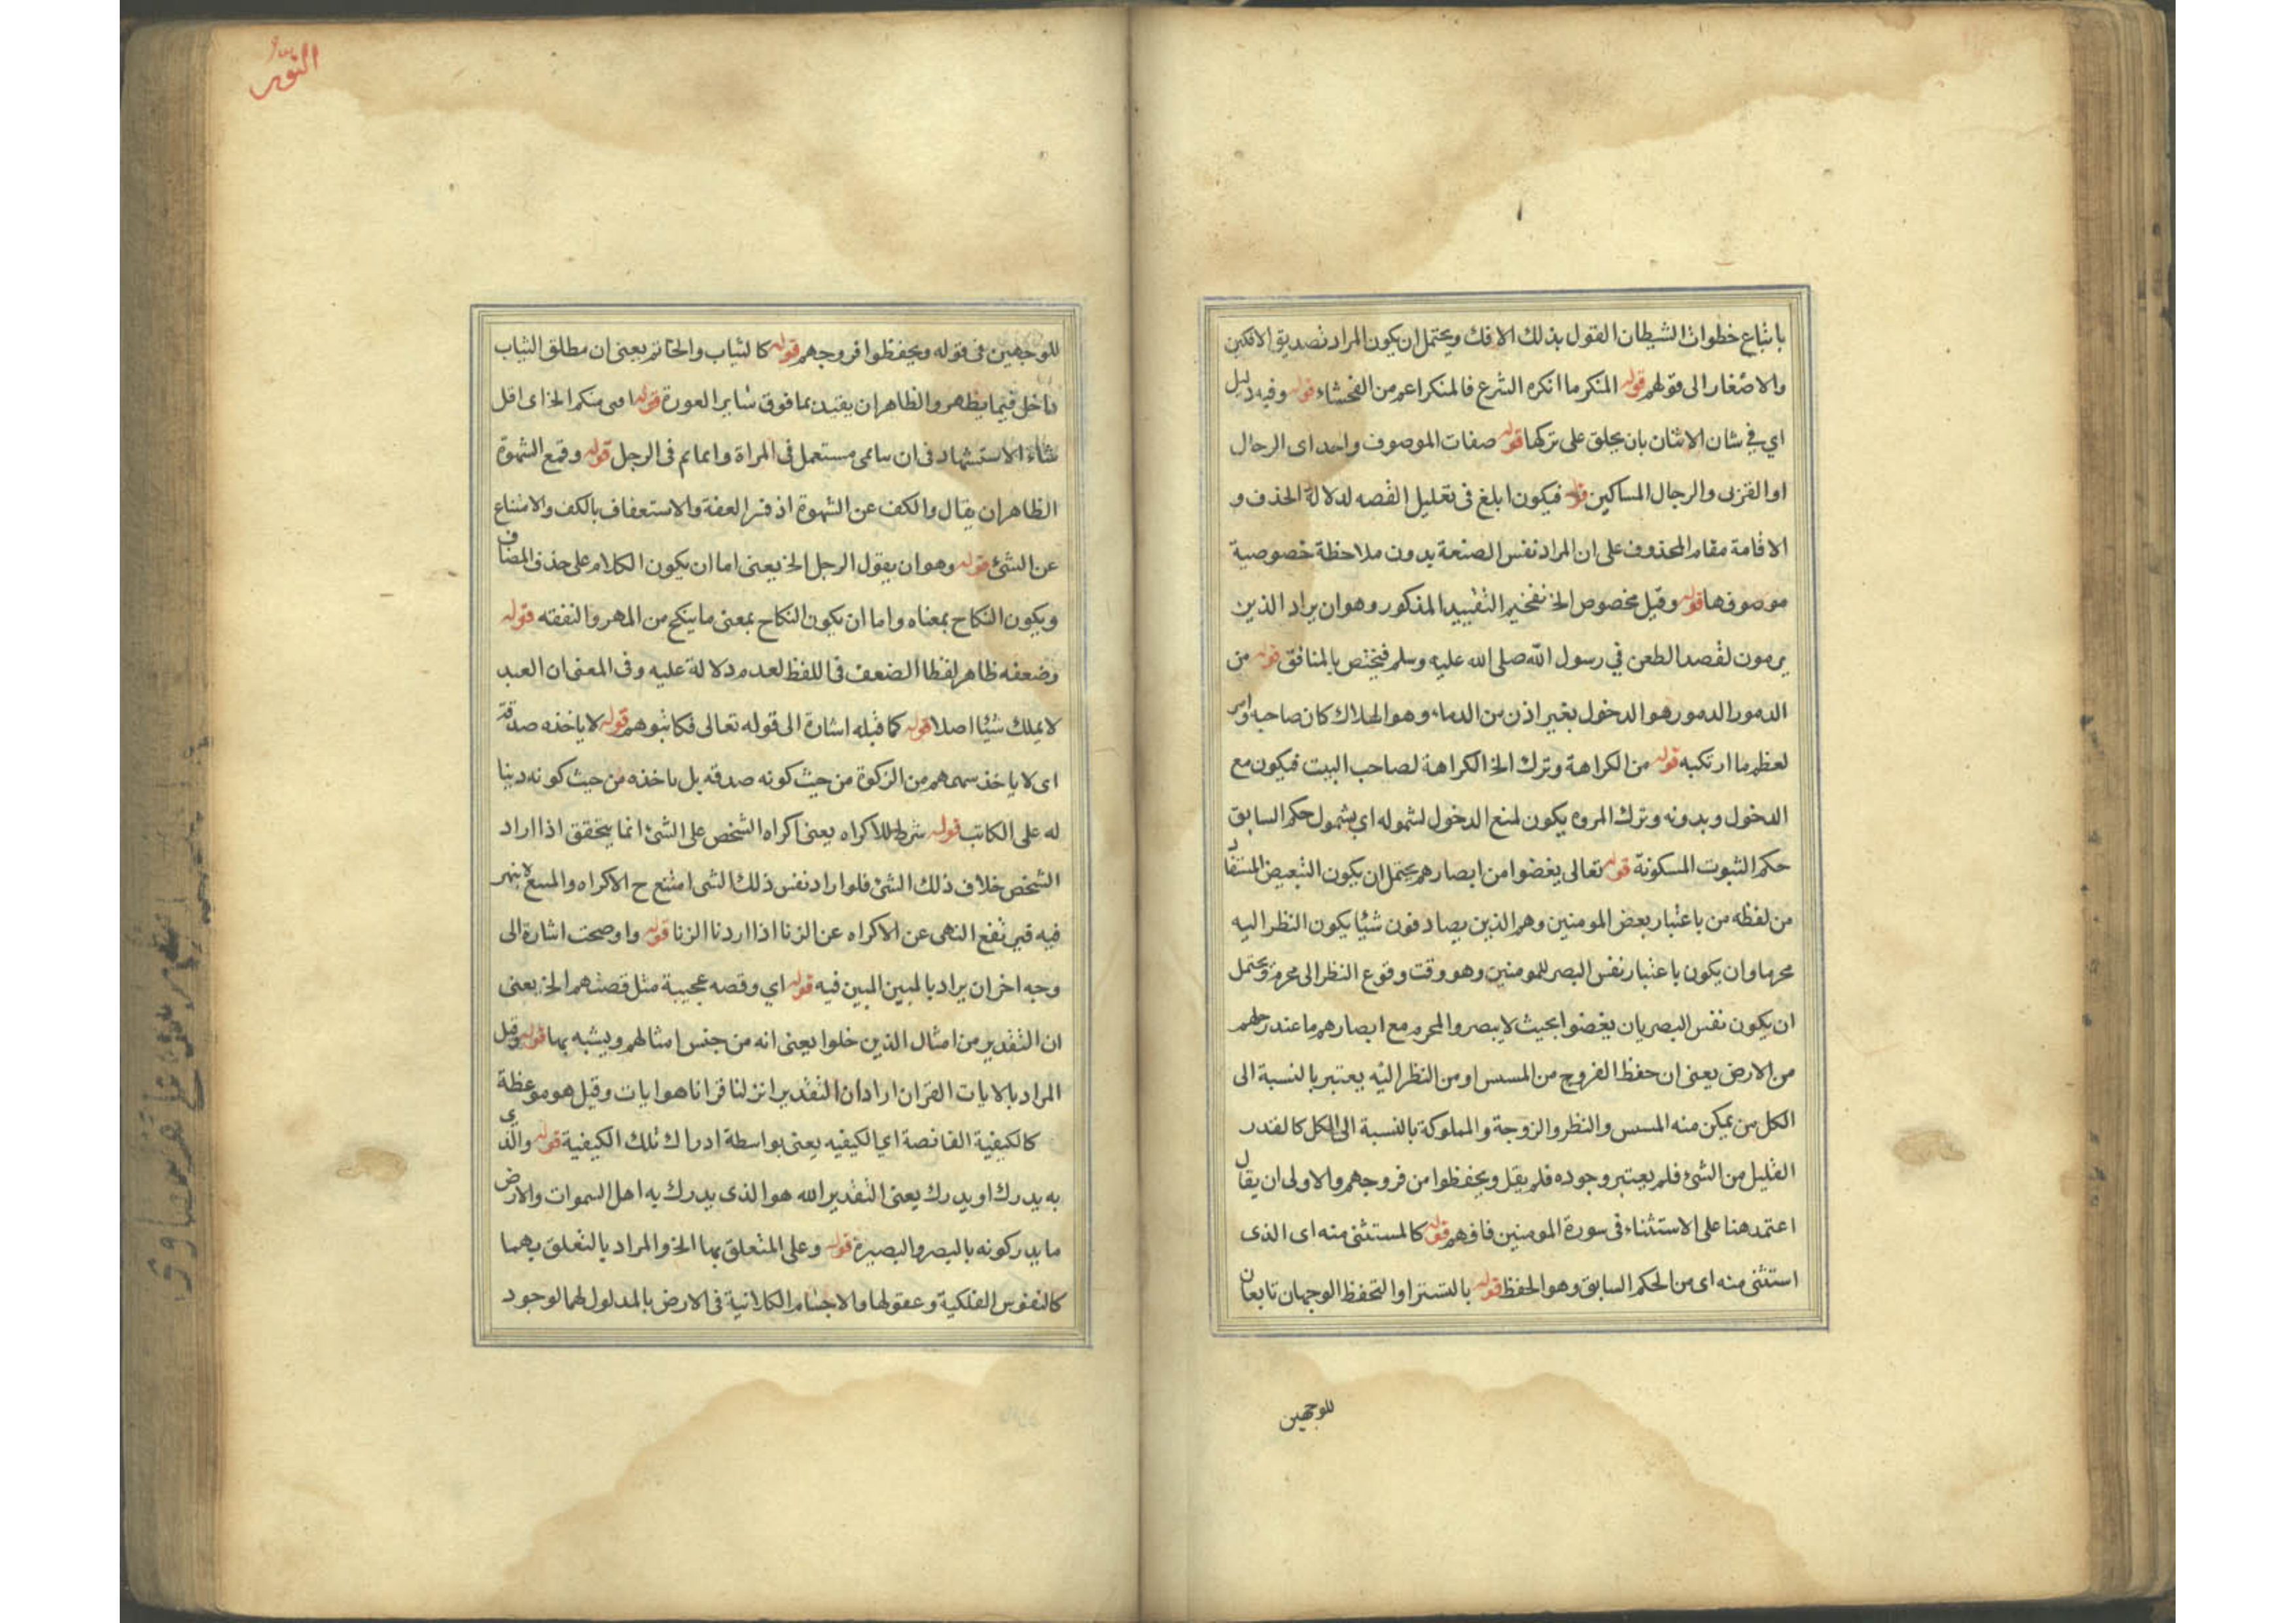 باتباع خطوات الشيطان القول بذلك الافك ويحتمل ان يكون المراد تصديق الافكين
والاصغار الى قولهم قوله المنكر ما انكره الشرع فالمنكر اعم من الفحشاء قوله وفيه دليل
اي في شان الاتنان بان يحلق على تركها قوله صفات الموصوف واحد اى الرجال
اوالقربى والرجال المساكين قوله فيكون ابلغ فى تعليل القصه لدلالة الحذف و
الاقامة مقام المحذوف على ان المراد نفس الصنعة بدون ملاحظة خصوصية
موصوفها قوله وقيل مخصوص الخ نفخيم التقييد المذكور وهو ان يراد الذين
يرمون لقصد الطعن في رسول الله صلى الله عليه وسلم فيختص بالمنافق قوله من
الدمور الدمور هو الدخول بغير اذن من الدمار وهو الهلاك كان صاحبه
لعظم ما ارتكبه قوله من الكراهة وترك الخ الكراهة لصاحب البيت فيكون مع
الدخول وبدونه وترك المروه يكون لمنع الدخول لشموله اي بشمول حكم السابق
حكم الثبوت المسكونة قوله تعالى يغضوا من ابصارهم يحتمل ان يكون التبعيض المستفاد
من لفظه من باعتبار بعض المومنين وهم الذين يصادفون شيئا يكون النظر اليه
محرما وان يكون باعتبار نفس البصر للمومنين وهو وقت وقوع النظر الى محرم ويحتمل
ان يكون نفس البصر بان يغضوا بحيث لا يبصر والمحرم مع ابصارهم ما عند رجلهم
من الارض يعنى ان حفظ الفروج من المسس او من النظر اليه يعتبر بالنسبة الى
الكل من يمكن منه المسس والنظر والزوجة والمملوكة بالنسبة الى الكل كالقدر
القليل من الشئ فلم يعتبر وجوده فلم يقل ويحفظوا من فروجهم والاولى ان يقال
اعتمد هنا على الاستثناء فى سورة المومنين فافهم قوله كالمستثنى منه اى الذى
استثنى منه اى من الحكم السابق وهو الحفظ قوله بالتستر او التحفظ الوجهان تابعان
للوجهين
النور
للوجهين فى قوله ويحفظوا فروجهم قوله كالثياب والخاتم يعنى ان مطلق الثياب
داخل فيما يظهر والظاهر ان يقيد بما فوق ساير العورة قوله منكم الخ اى اقل
الاستشهاد فى ان مستعمل فى المراة وايمايم فى الرجل قوله وقمع الشهوة
الظاهر ان يقال والكف عن الشهوة اذ فسر العفة والاستعفاف بالكف والامتناع
عن الشئ قوله وهو ان يقول الرجل الخ يعنى اما ان يكون الكلام على حذف المضاف
ويكون النكاح بمعناه واما ان يكون النكاح بمعنى ما ينكح من المهر والنفقه قوله
وضعفه ظاهر لفظا الضعف فى اللفظ لعدم دلالة عليه وفى المعنى ان العبد
لا يملك شيئا اصلا قوله كما قبله اشارة الى قوله تعالى فكاتبوهم قوله لا ياخذه صدقة
اى لا ياخذ سهمهم من الزكوة من حيث كونه صدقه بل ياخذه من حيث كونه دينا
له على الكاتب قوله شرط للاكراه يعنى اكراه الشخص على الشئ انما يتحقق اذا اراد
الشخص خلاف ذلك الشئ فلو اراد نفس ذلك الشى امتنع ح الاكراه
فيه قبى نفع النهى عن الاكراه عن الزنا اذا اردنا الزنا قوله واوضحت اشارة الى
وجه اخر ان يراد بالمبين المبين فيه قوله اي وقصه عجيبة مثل قصتهم الخ يعنى
ان التقدير من امثال الذين خلوا يعنى انه من جنس امثالهم ويشبه بها قوله وقيل
المراد بالايات القران اراد ان التقدير انزلنا قرانا هو ايات وقيل هو موعظة
كالكيفية الفائضة اي الكيفيه يعنى بواسطة ادراك تلك الكيفية قوله والذى
به يدرك او يدرك يعنى التقدير الله هو الذى يدرك به اهل السموات والارض
ما يدركونه بالبصر والبصيرة قوله وعلى المتعلق بها الخ والمراد بالتعلق بهما
كالنفوس الفلكية وعقولها والاجسام الكائنية فى الارض بالمدلول لهما لوجود